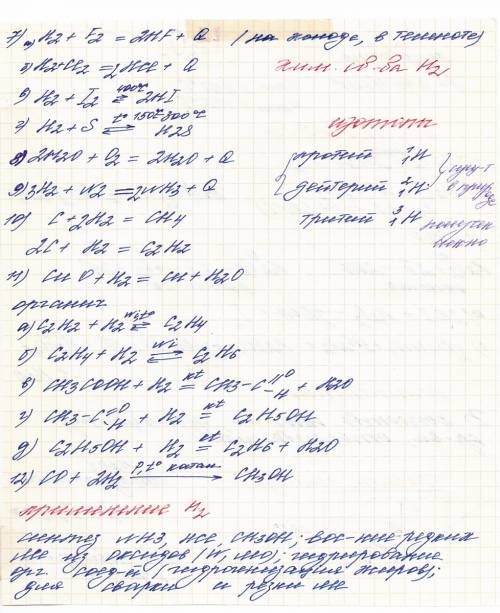 7) а) H2 + F2 = 2HF + Q (на холоде, в темноте)
б) H2 + Cl2 = 2HCl + Q хим. св-ва H2
в) H2 + I2 400°C ⇄ 2HI
г) H2 + S t° 150°C-300°C ⇄ H2S изотопы
8) 2H2O + O2 = 2H2O + Q протий ¹₁H
9) 3H2 + N2 = 2NH3 + Q дейтерий ²₁H в прир.
10) C + 2H2 = CH4 тритий ³₁H получен
2C + H2 = C2H2
11) CuO + H2 = Cu + H2O
органич
а) C2H2 + H2 Ni, t° ⇄ C2H4
б) C2H4 + H2 Ni ⇄ C2H6
в) CH3COOH + H2 kt = CH3-C=O-H + H2O
г) CH3-C=O-H + H2 kt = C2H5OH
д) C2H5OH + H2 kt = C2H6 + H2O
12) CO + 2H2 P, t° катал → CH3OH
применение H2
синтез NH3, HCl, CH3OH; вос-ние редких
Me из оксидов (W, Mo); гидрирование
орг. соед-й (гидрогенизация жиров);
для сварки и резки Me